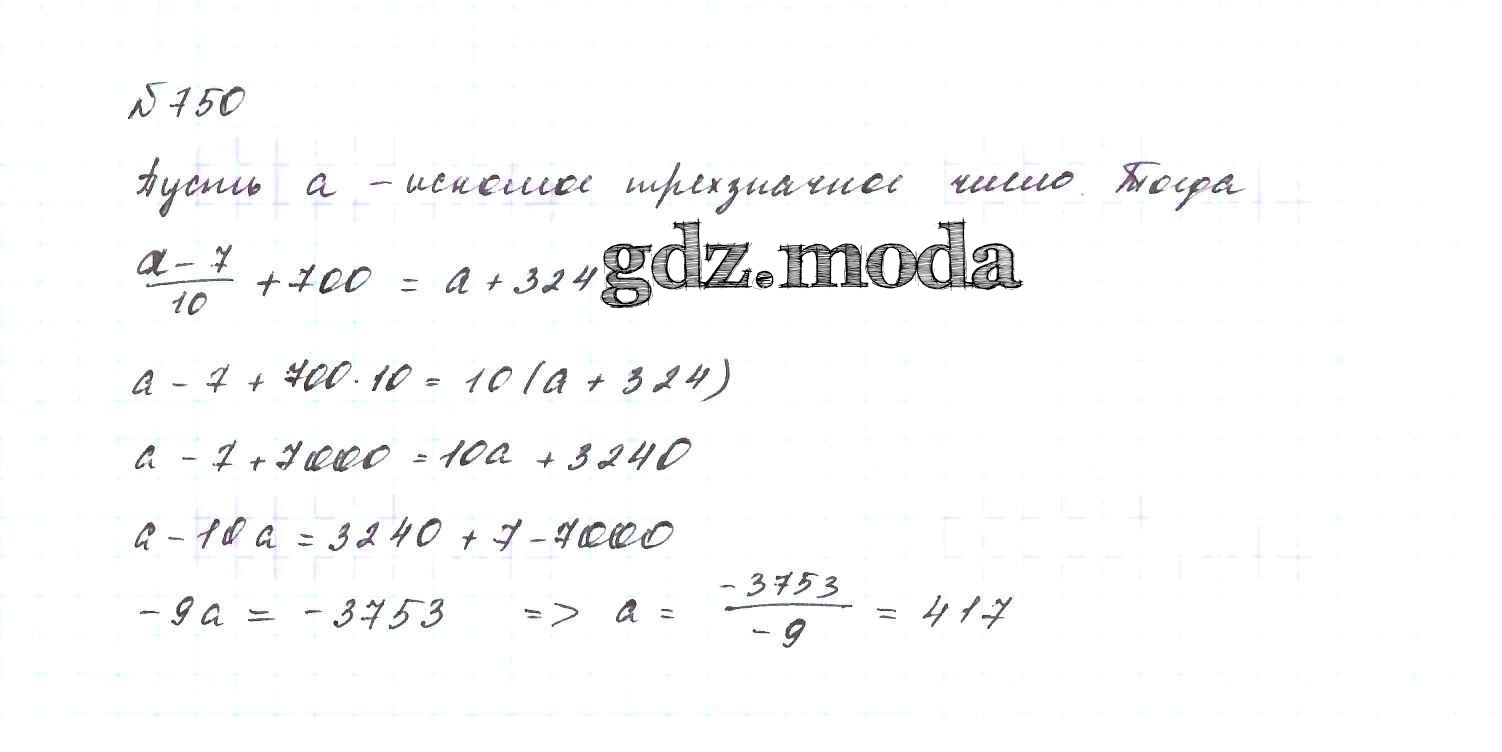 № 750
Пусть a – искомое трехзначное число. Тогда
(a – 7)/10 + 700 = a + 324
gdz.moda
a – 7 + 700·10 = 10(a + 324)
a – 7 + 7000 = 10a + 3240
a – 10a = 3240 + 7 – 7000
-9a = -3753 => a = -3753/-9 = 417